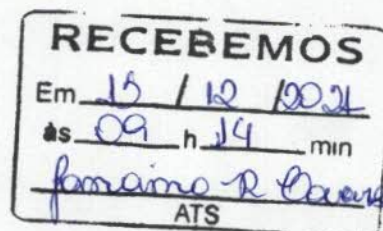 RECEBEMOS
Em 15 / 12 /2021
às 09 h 14 min
R
ATS